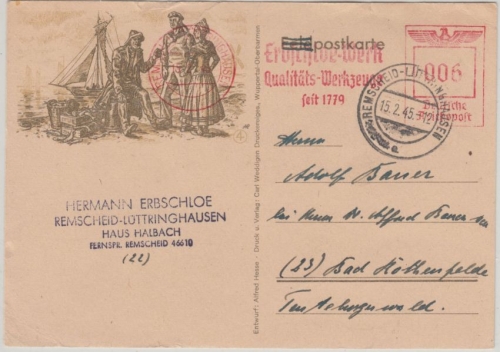 postkarte
Erbschloe-Werk
Qualitäts-Werkzeuge
seit 1779
006
Deutsche
Reichspost
REMSCHEID-LÜTTRINGHAUSEN
15.2.45
a
4
HERMANN ERBSCHLOE
REMSCHEID-LÜTTRINGHAUSEN
HAUS HALBACH
FERNSPR. REMSCHEID 46610
(22)
Entwurf: Alfred Hesse - Druck u. Verlag: Carl Weddigen Druckerei, Wuppertal-Barmen
Herrn
Adolf Bauer
bei Herrn Alfred Bauer
(23) Bad Rothenfelde
Teutoburgerwald.